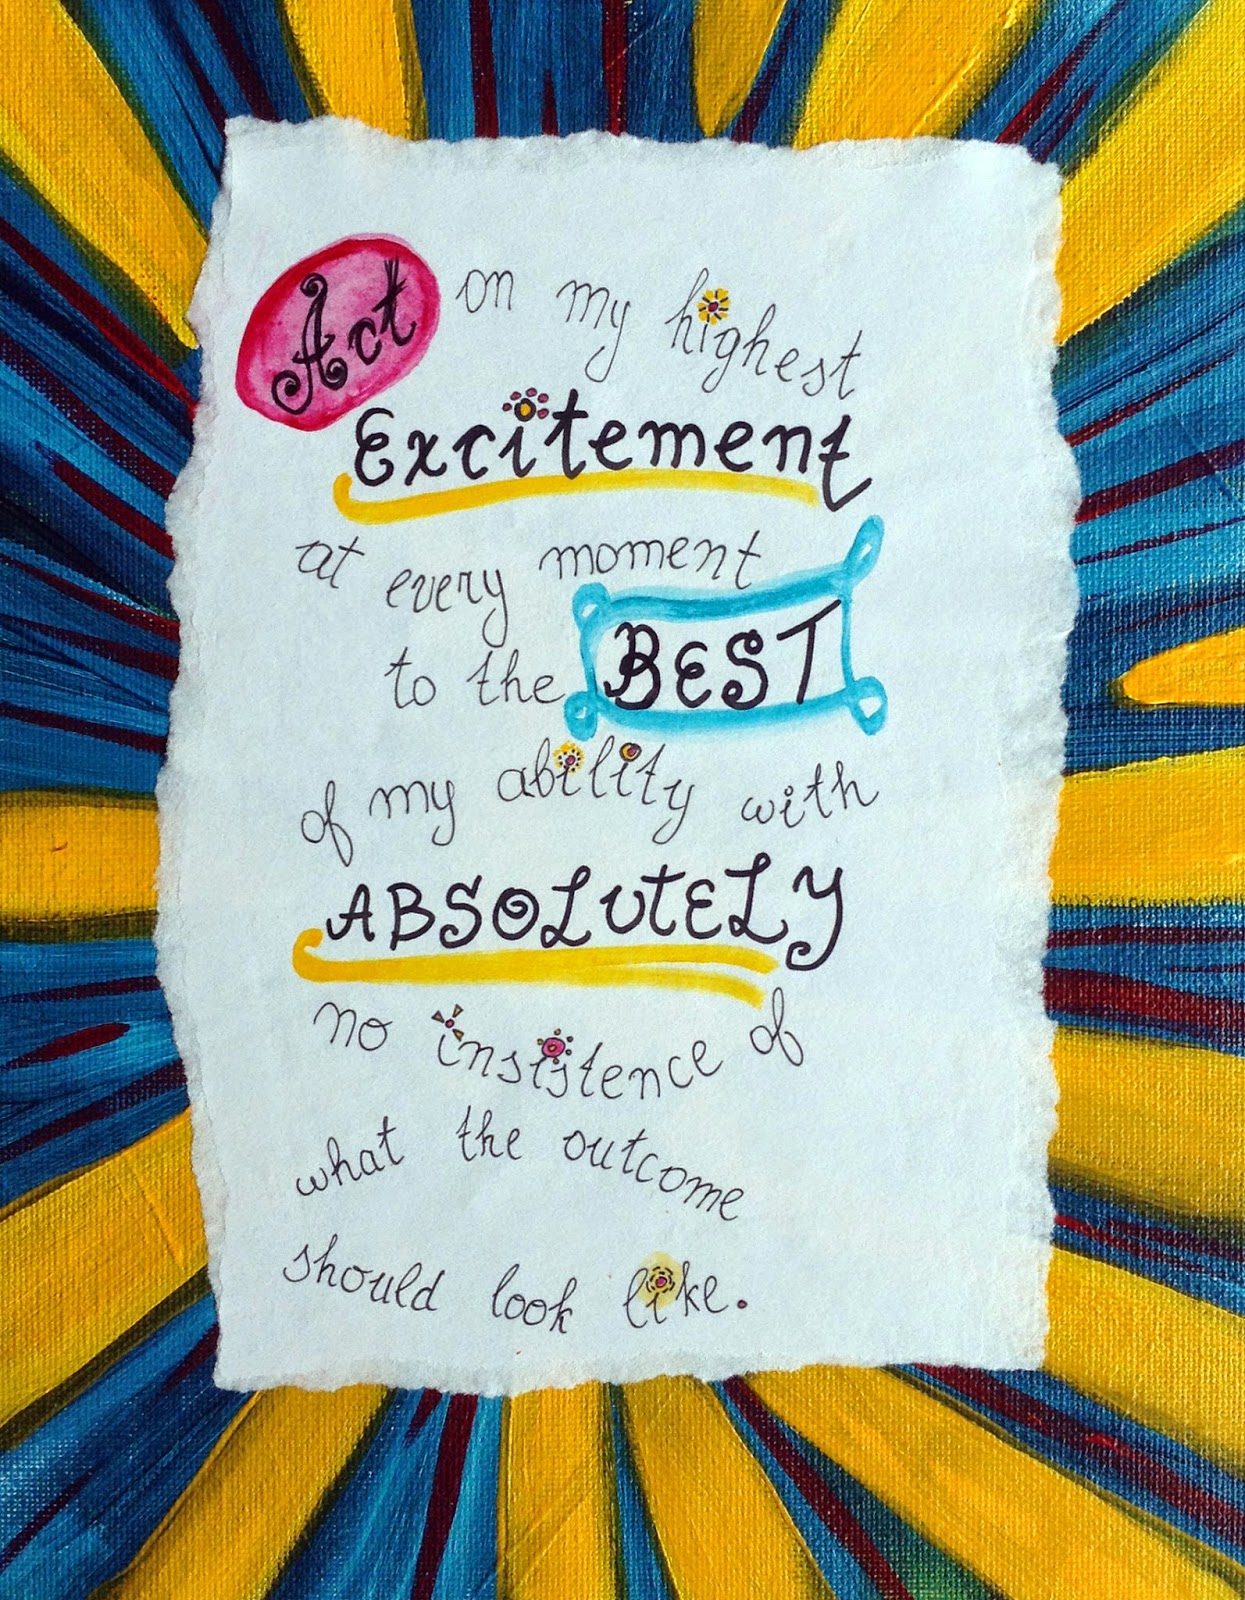 Act on my highest
Excitement
at every moment
to the BEST
of my ability with
ABSOLUTELY
no insistence of
what the outcome
should look like.